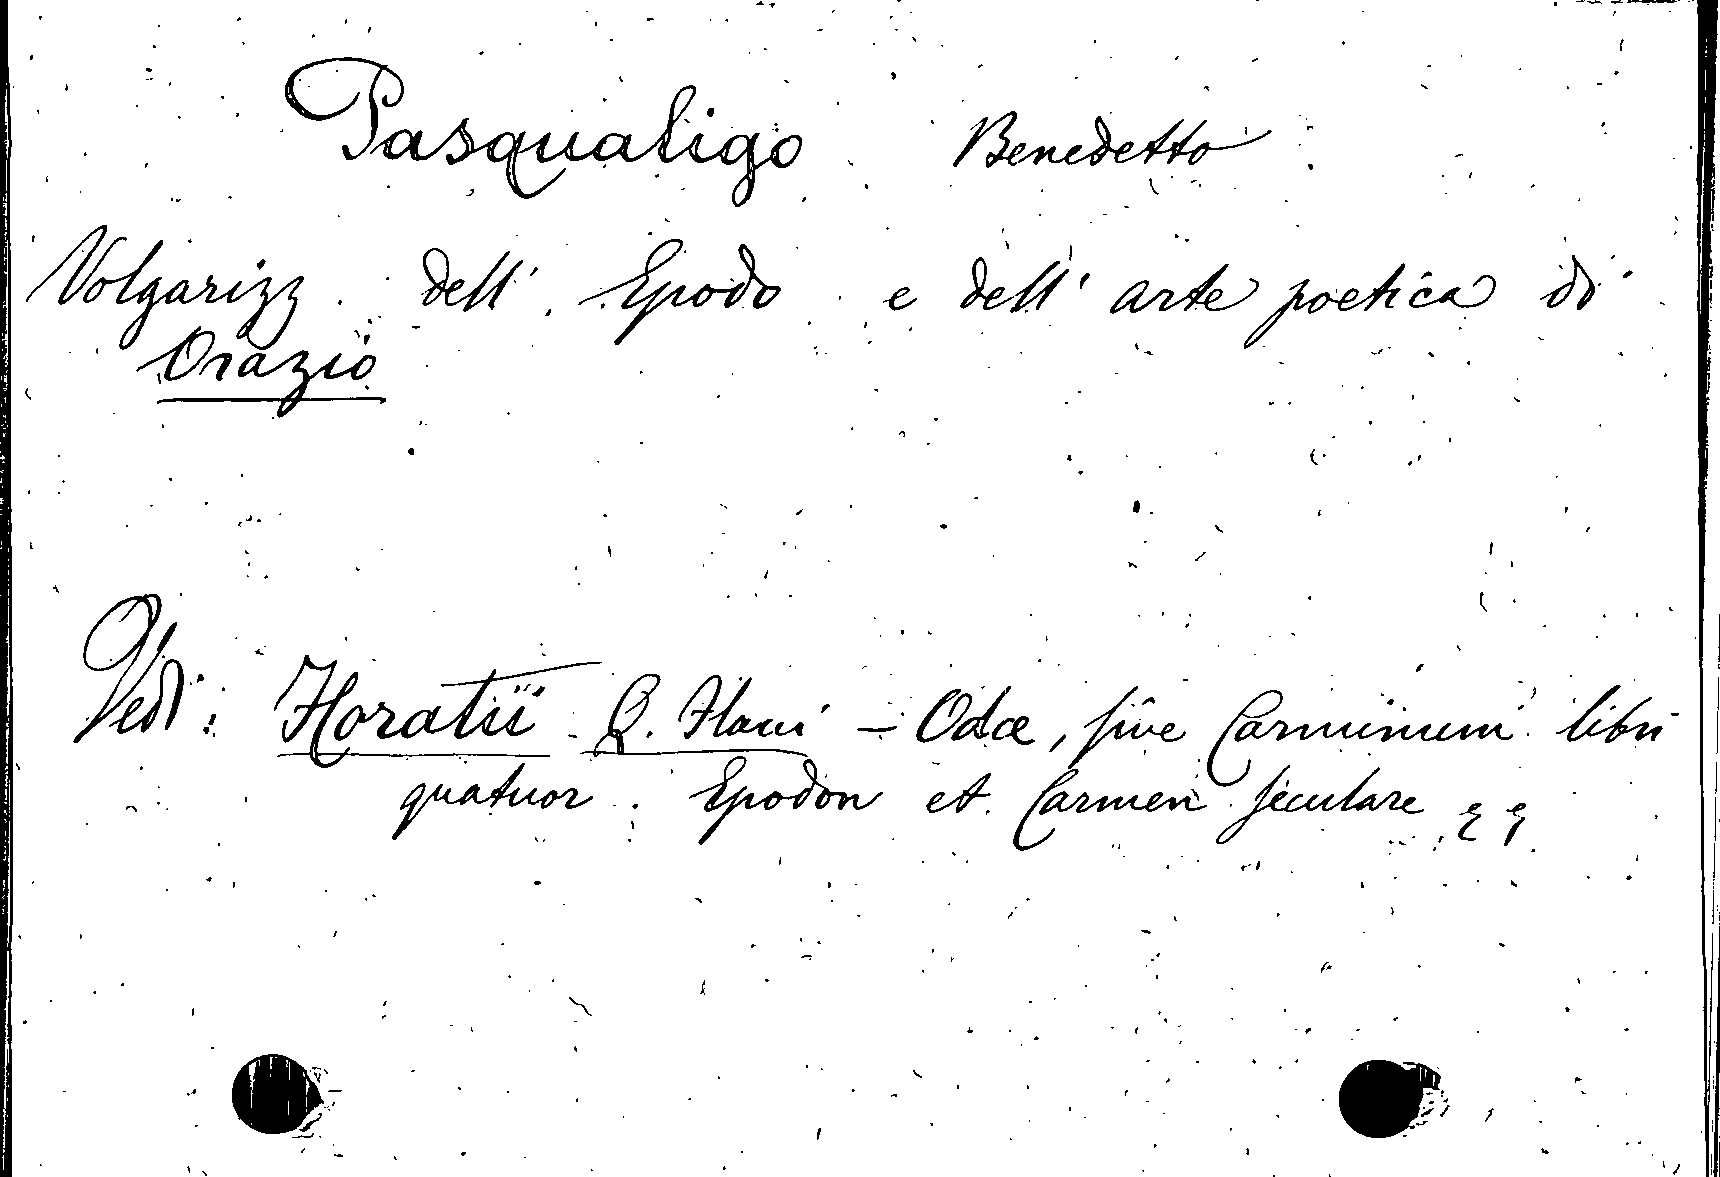 Pasqualigo Benedetto
Volgarizz. dell' Epodo e dell' arte poetica di
Orazio
Vedi: Horatii Q. Flacci – Odæ, sive Carminum libri
quatuor. Epodon et Carmen seculare